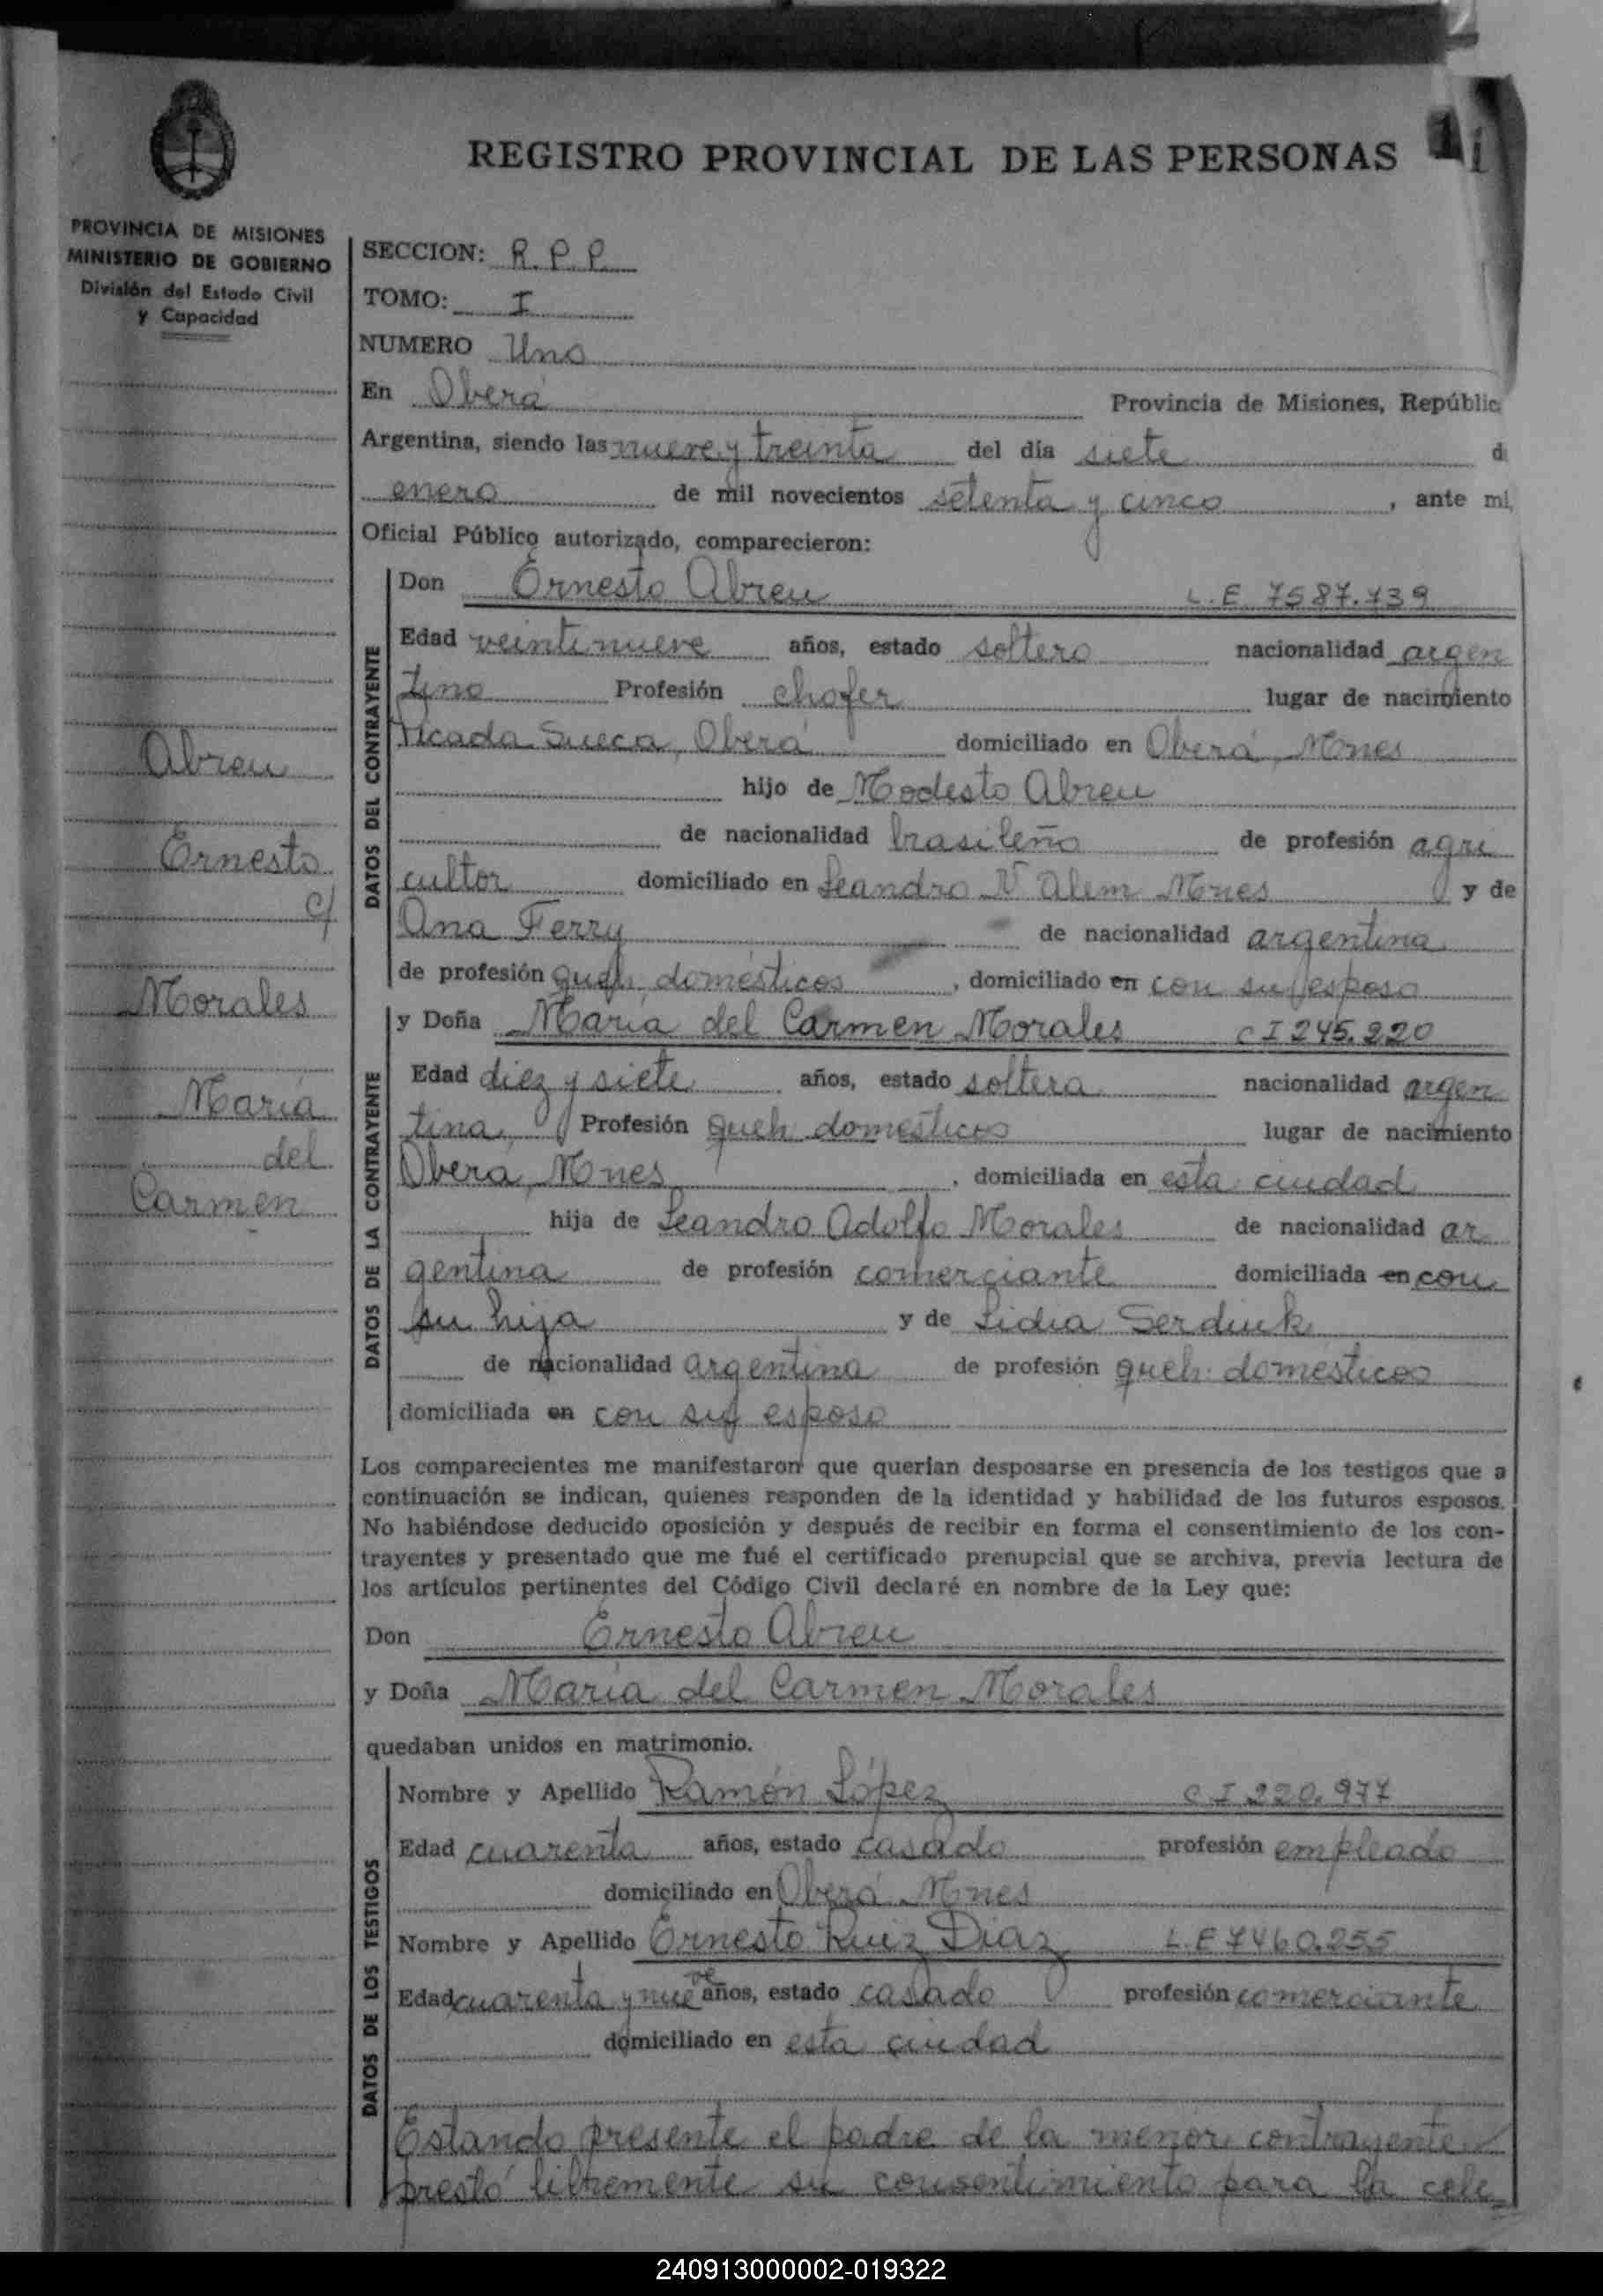 REGISTRO PROVINCIAL DE LAS PERSONAS
PROVINCIA DE MISIONES
MINISTERIO DE GOBIERNO
División del Estado Civil
y Capacidad
SECCION: R. P. P.
TOMO: I
NUMERO Uno
En Oberá Provincia de Misiones, Repúblic
Argentina, siendo las nueve y treinta del día siete d
enero de mil novecientos setenta y cinco, ante mi,
Oficial Público autorizado, comparecieron:
DATOS DEL CONTRAYENTE
Don Ernesto Abreu L. E 7587.739
Edad veintinueve años, estado soltero nacionalidad argen
tino Profesión chofer lugar de nacimiento
Picada Sueca, Oberá domiciliado en Oberá, Mnes
hijo de Modesto Abreu
de nacionalidad brasileño de profesión agri
cultor domiciliado en Leandro N Alem Mnes y de
Ana Ferry de nacionalidad argentina
de profesión queh. domésticos, domiciliado en con su esposo
DATOS DE LA CONTRAYENTE
y Doña María del Carmen Morales C I 245.220
Edad diez y siete años, estado soltera nacionalidad argen
tina, Profesión queh domesticos lugar de nacimiento
Oberá, Mnes, domiciliada en esta ciudad
hija de Leandro Adolfo Morales de nacionalidad ar
gentina de profesión comerciante domiciliada en con
su hija y de Lidia Serdiuk
de nacionalidad argentina de profesión queh. domésticos
domiciliada en con su esposo
Abreu
Ernesto
c/
Morales
María
del
Carmen
Los comparecientes me manifestaron que querían desposarse en presencia de los testigos que a
continuación se indican, quienes responden de la identidad y habilidad de los futuros esposos.
No habiéndose deducido oposición y después de recibir en forma el consentimiento de los con-
trayentes y presentado que me fué el certificado prenupcial que se archiva, previa lectura de
los artículos pertinentes del Código Civil declaré en nombre de la Ley que:
Don Ernesto Abreu
y Doña María del Carmen Morales
quedaban unidos en matrimonio.
DATOS DE LOS TESTIGOS
Nombre y Apellido Ramón López C. I 220.977
Edad cuarenta años, estado casado profesión empleado
domiciliado en Oberá Mnes
Nombre y Apellido Ernesto Ruiz Diaz L. E 7460.255
Edad cuarenta y nueve años, estado casado profesión comerciante
domiciliado en esta ciudad
Estando presente el padre de la menor contrayente
prestó libremente su consentimiento para la cele=
240913000002-019322